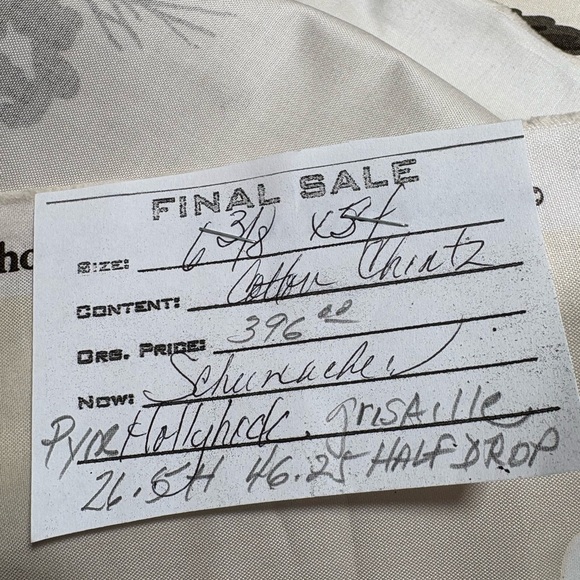 FINAL SALE
SIZE: 6 3/8 x 54
CONTENT: Cotton Chintz
ORG. PRICE: 396.00
NOW: Schumacher
Pyne Hollyhock. grisAille
26.5H 46.25 HALF DROP
ho